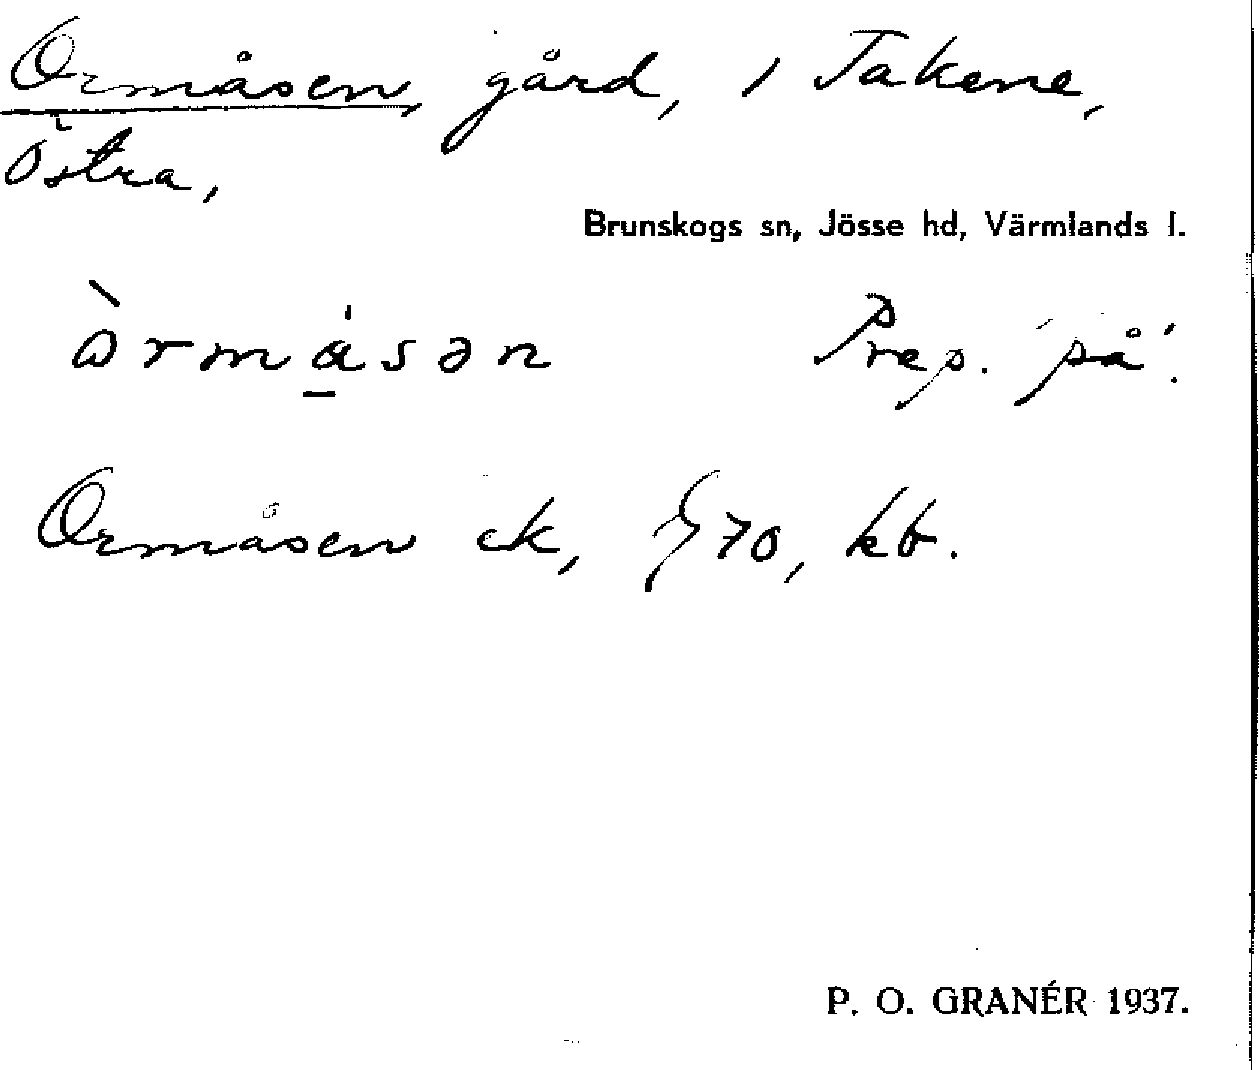 Ormåsen, gård, 1 Takene,
Östra,
Brunskogs sn, Jösse hd, Värmlands l.
Prep. 'på'.
Ormåsen ek, 70, kb.
P. O. GRANÉR 1937.